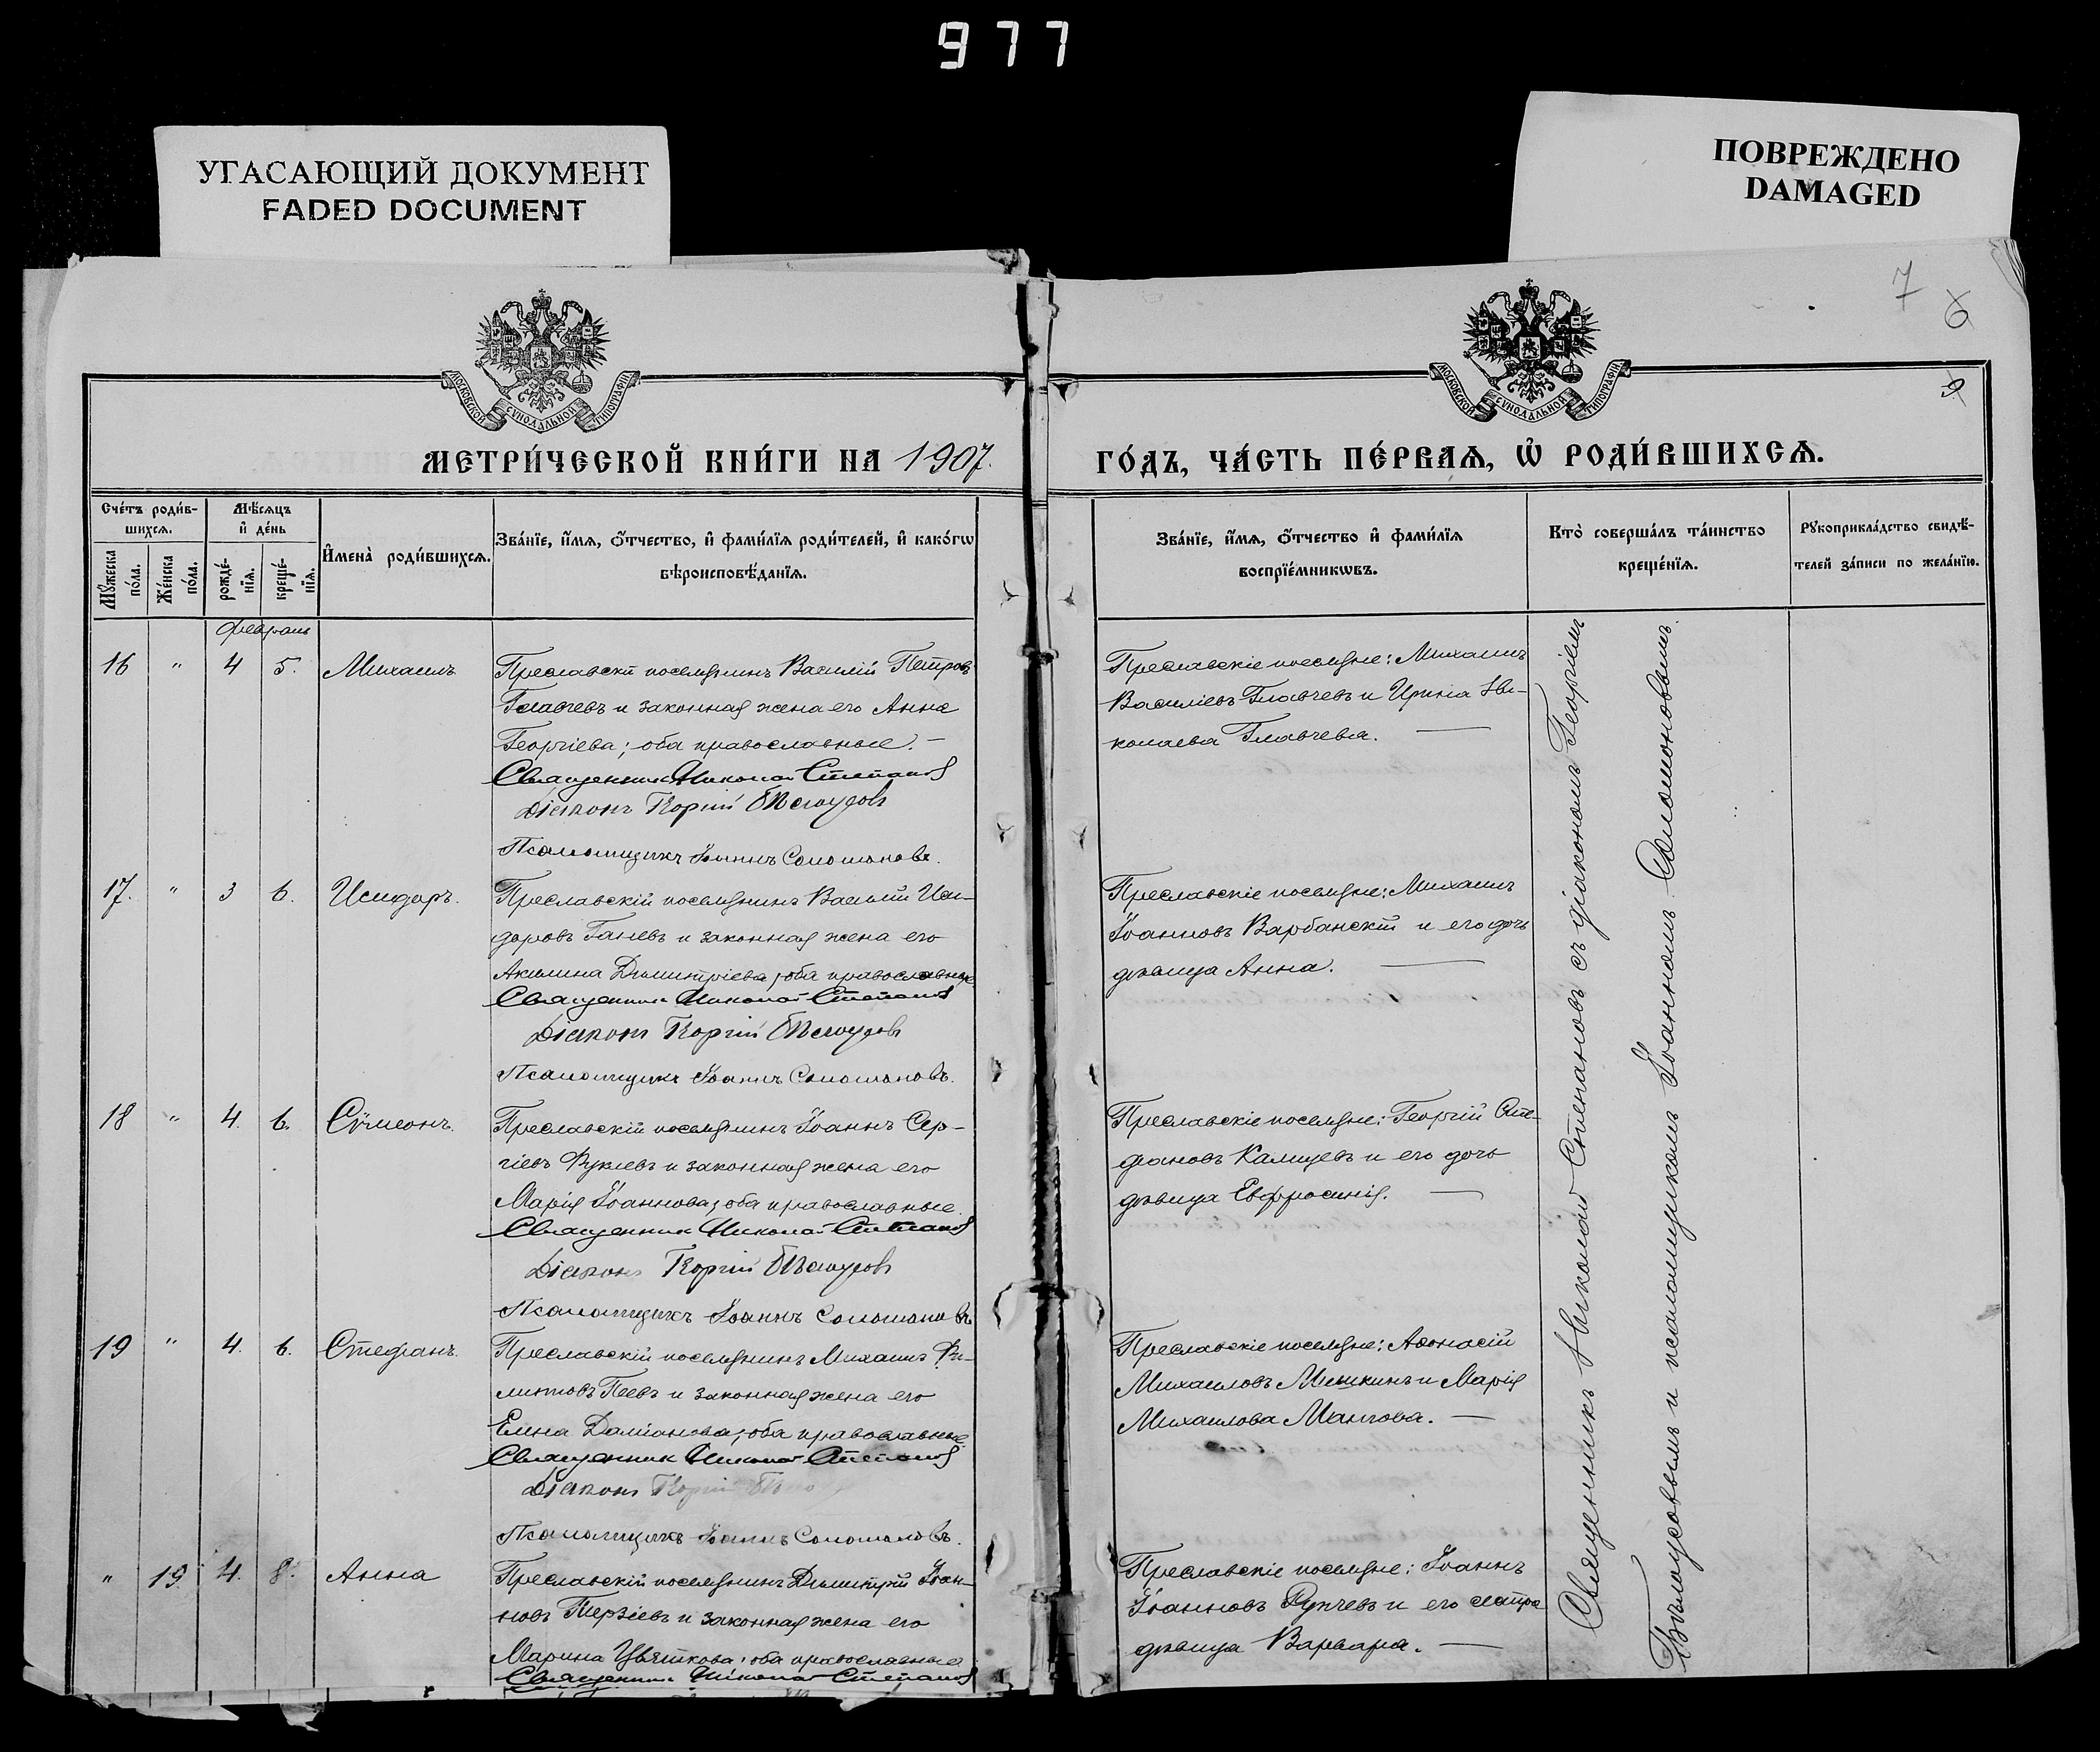 977
УГАСАЮЩИЙ ДОКУМЕНТ
FADED DOCUMENT
ПОВРЕЖДЕНО
DAMAGED
7
6
9
МОСКОВСКОЙ СУНОДАЛЬНОЙ ТИПОГРАФІИ
МОСКОВСКОЙ СУНОДАЛЬНОЙ ТИПОГРАФІИ
МЕТРИ́ЧЕСКОЙ КНИ́ГИ НА 1907.
ГО́ДЪ, ЧА́СТЬ ПЕ́РВАѦ, Ѡ҆ РОДИ́ВШИХСѦ.
Сче́тъ роди́в-
шихсѧ.
Мꙋ́жеска
по́ла.
Же́нска
по́ла.
Мѣ́сѧцъ
и҆ де́нь
рожде́-
нїѧ.
креще́-
нїѧ.
И҆мена̀ роди́вшихсѧ.
Зва́нїе, и҆́мѧ, ѻ҆́тчество, и҆ фами́лїѧ роди́телей, и҆ како́гѡ
вѣроисповѣ́данїѧ.
Зва́нїе, и҆́мѧ, ѻ҆́тчество и҆ фами́лїѧ
воспрїе́мникѡвъ.
Кто̀ соверша́лъ та́инство
креще́нїѧ.
Рꙋкоприкла́дство свидѣ́-
телей за́писи по жела́нїю.
Февраль
16 " 4 5. Михаилъ
Преславскій поселянинъ Василій Петровъ
Главчевъ и законная жена его Анна
Георгіева; оба православные. —
Священникъ Николай Степановъ
Діаконъ Георгій Бѣлоусовъ
Псаломщикъ Іоаннъ Соломоновъ.
Преславскіе поселяне: Михаилъ
Василіевъ Главчевъ и Ирина Ни-
колаева Главчева. —
17. " 3 6. Исидоръ.
Преславскій поселянинъ Василій Иси-
доровъ Ганевъ и законная жена его
Акилина Димитріева; оба православные
Священникъ Николай Степановъ
Діаконъ Георгій Бѣлоусовъ
Псаломщикъ Іоаннъ Соломоновъ.
Преславскіе поселяне: Михаилъ
Іоанновъ Варбанскій и его дочь
дѣвица Анна. —
18 " 4. 6. Сѵмеонъ.
Преславскій поселянинъ Іоаннъ Сер-
гіевъ Фуклевъ и законная жена его
Марія Іоаннова; оба православные.
Священникъ Николай Степановъ
Діаконъ Георгій Бѣлоусовъ
Псаломщикъ Іоаннъ Соломоновъ
Преславскіе поселяне: Георгій Сте-
фановъ Калицевъ и его дочь
дѣвица Евфросинія. —
19 " 4. 6. Стефанъ.
Преславскій поселянинъ Михаилъ Фи-
липповъ Пеевъ и законная жена его
Елена Даміанова; оба православные.
Священникъ Николай Степановъ
Діаконъ Георгій
Псаломщикъ Іоаннъ Соломоновъ.
Преславскіе поселяне: Аѳонасій
Михаиловъ Мишкинъ и Марія
Михаилова Манчова. —
" 19. 4. 8. Анна
Преславскій поселянинъ Димитрій Іоан-
новъ Терзіевъ и законная жена его
Марина Цвяткова; оба православные
Священникъ Николай Степановъ
Преславскіе поселяне: Іоаннъ
Іоанновъ Рупчевъ и его сестра
дѣвица Варвара. —
Священникъ Николай Степановъ съ діакономъ Георгіемъ
Бѣлоусовымъ и псаломщикомъ Іоанномъ Соломоновымъ.